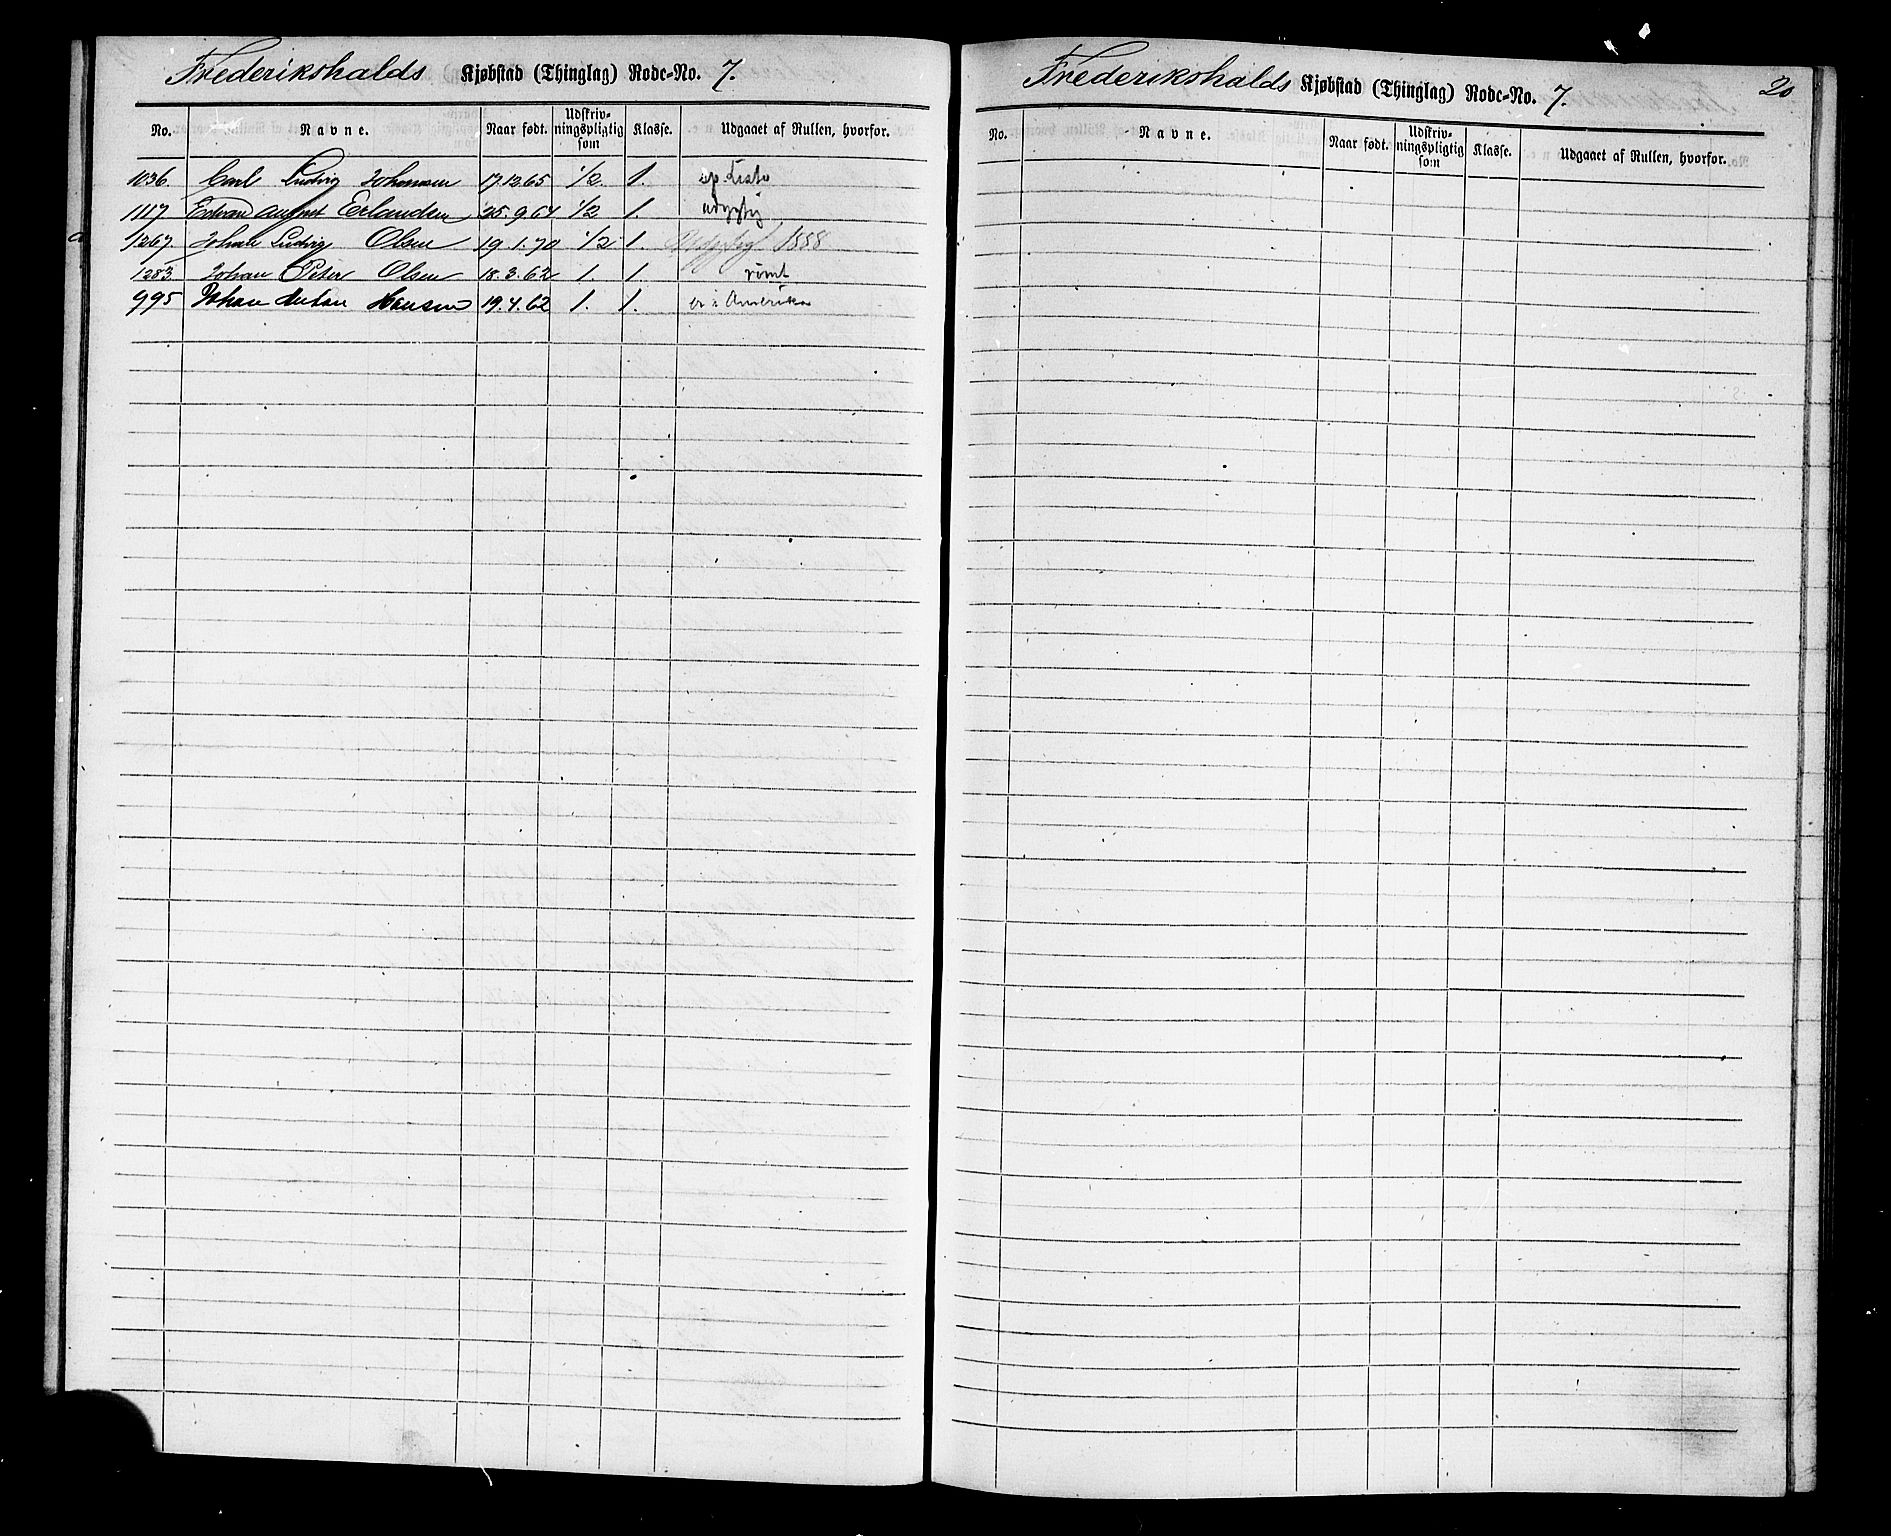 Frederikshalds Kjøbstad (Thinglag) Rode-No. 7.
No. Navne. Naar født. Udskriv-ningspligtig som Klasse. Udgaaet af Rullen, hvorfor.
1036. Carl Ludvig Johansen 17.12.65 1/2. 1.
1117 Edvard August Erlandsen 25.9.64 1/2 1. udygtig
1267. Johan Ludvig Olsen 19.1.70 1/2 1. 1888
1283. Johan Peter Olsen 18.3.62 1. 1. rømt
995 Johan Anton Hansen 19.4.62 1. 1. er i Amerika
Frederikshalds Kjøbstad (Thinglag) Rode-No. 7.
20
No. Navne. Naar født. Udskriv-ningspligtig som Klasse. Udgaaet af Rullen, hvorfor.